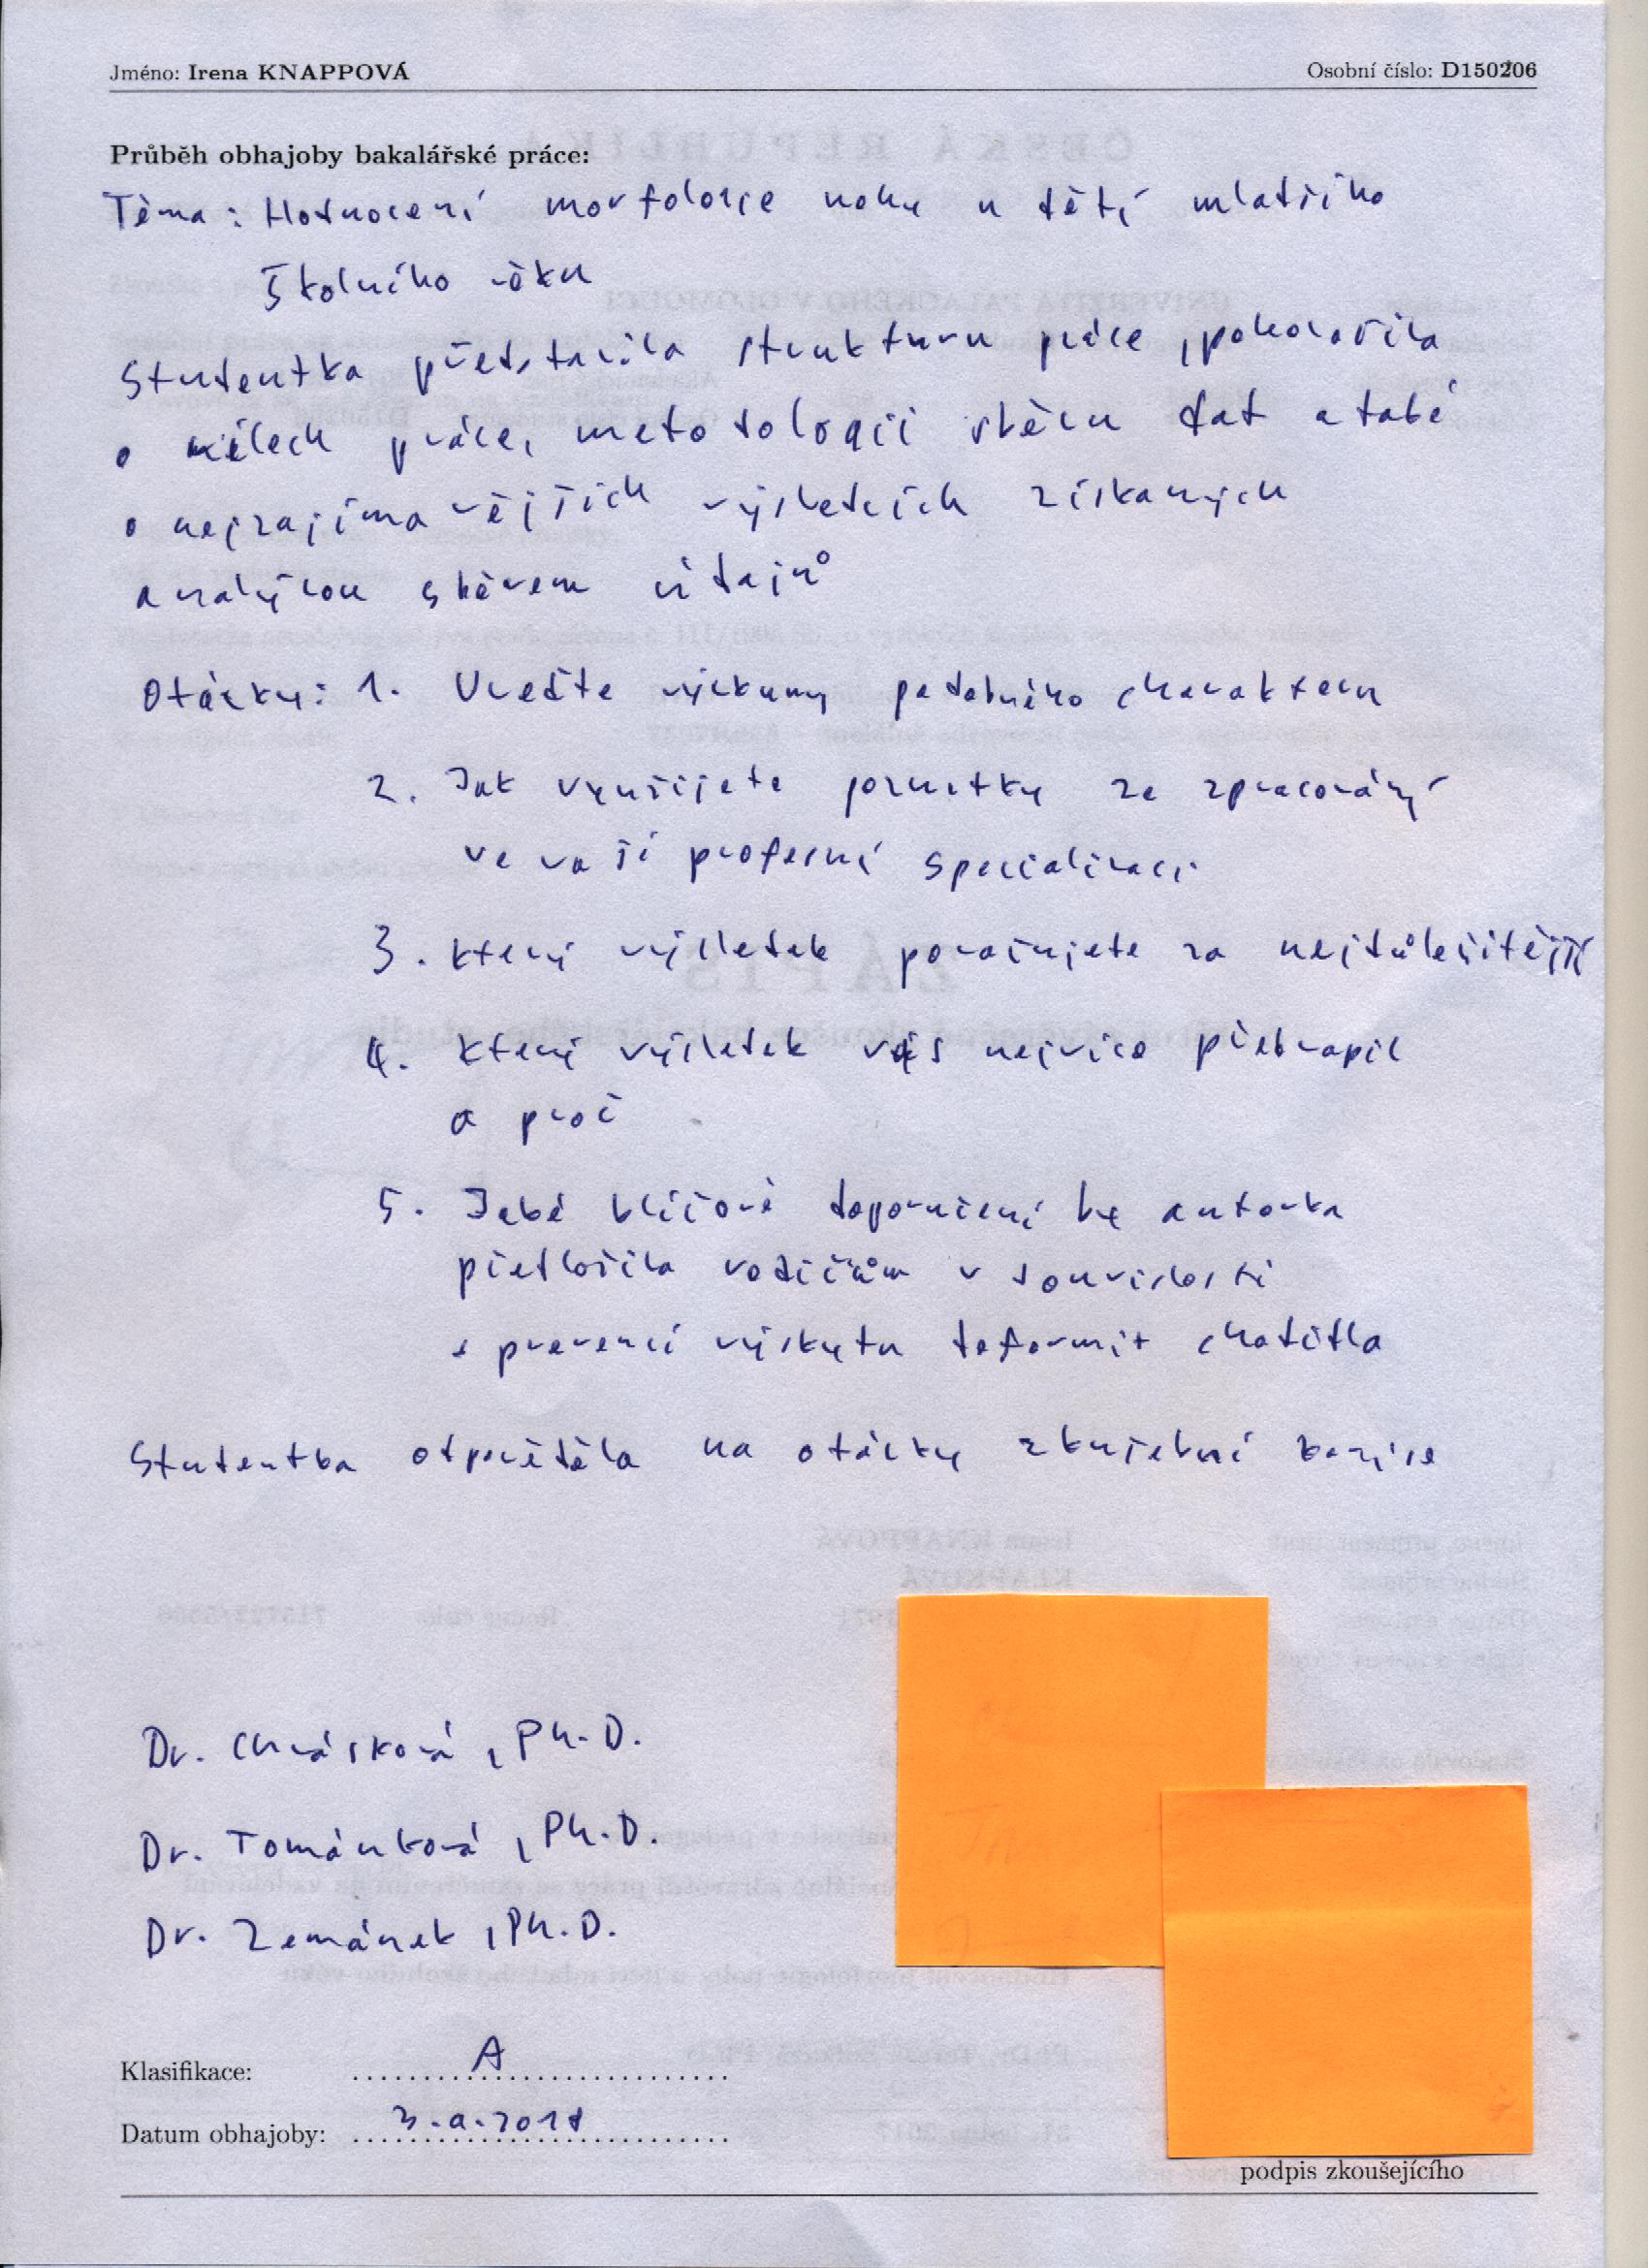 Jméno: Irena KNAPPOVÁ Osobní číslo: D150206
Průběh obhajoby bakalářské práce:
Téma: Hodnocení morfologie nohy u dětí mladšího
školního věku
Studentka představila strukturu práce, pohovořila
o cílech práce, metodologii sběru dat a také
o nejzajímavějších výsledcích získaných
analýzou sběrem údajů
Otázky: 1. Uveďte výzkumy podobného charakteru
2. Jak využijete poznatky ze zpracování
ve vaší profesní specializaci
3. Který výsledek považujete za nejdůležitější
4. Který výsledek vás nejvíce překvapil
a proč
5. Jaké klíčové doporučení by autorka
předložila rodičům v souvislosti
s prevencí výskytu deformit chodidla
Studentka odpověděla na otázky zkušební komise
Dr. Chrásková, Ph.D.
Dr. Tománková, Ph.D.
Dr. Zemánek, Ph.D.
Klasifikace: A
Datum obhajoby:
podpis zkoušejícího